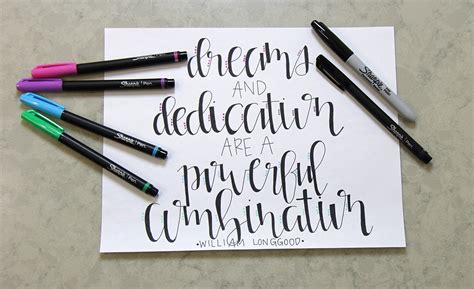 dreams
AND
dedication
ARE A
powerful
combination
• WILLIAM LONGGOOD •
Sharpie Pen
Sharpie Pen
Sharpie Pen
Sharpie Pen
Sharpie